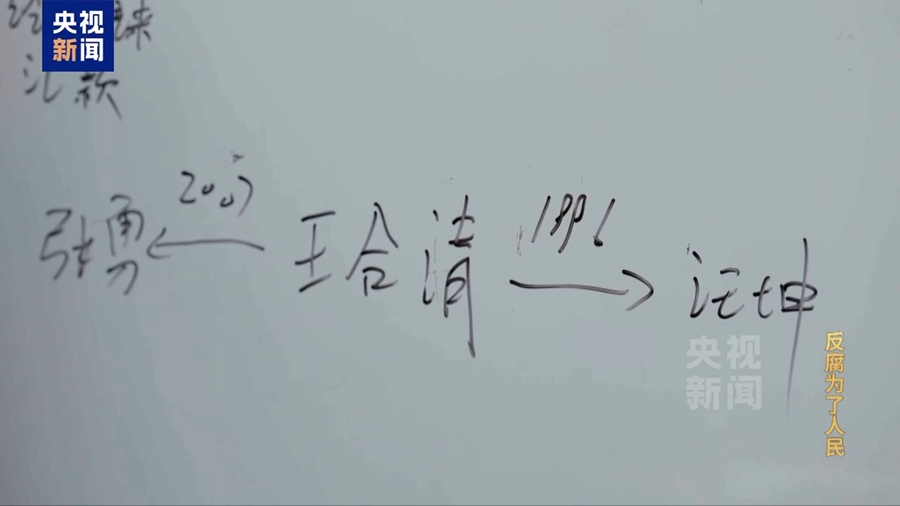 央视
新闻
来
汇款
2007 1996
张勇 ← 王合清 → 汪坤
央视
新闻
反腐为了人民